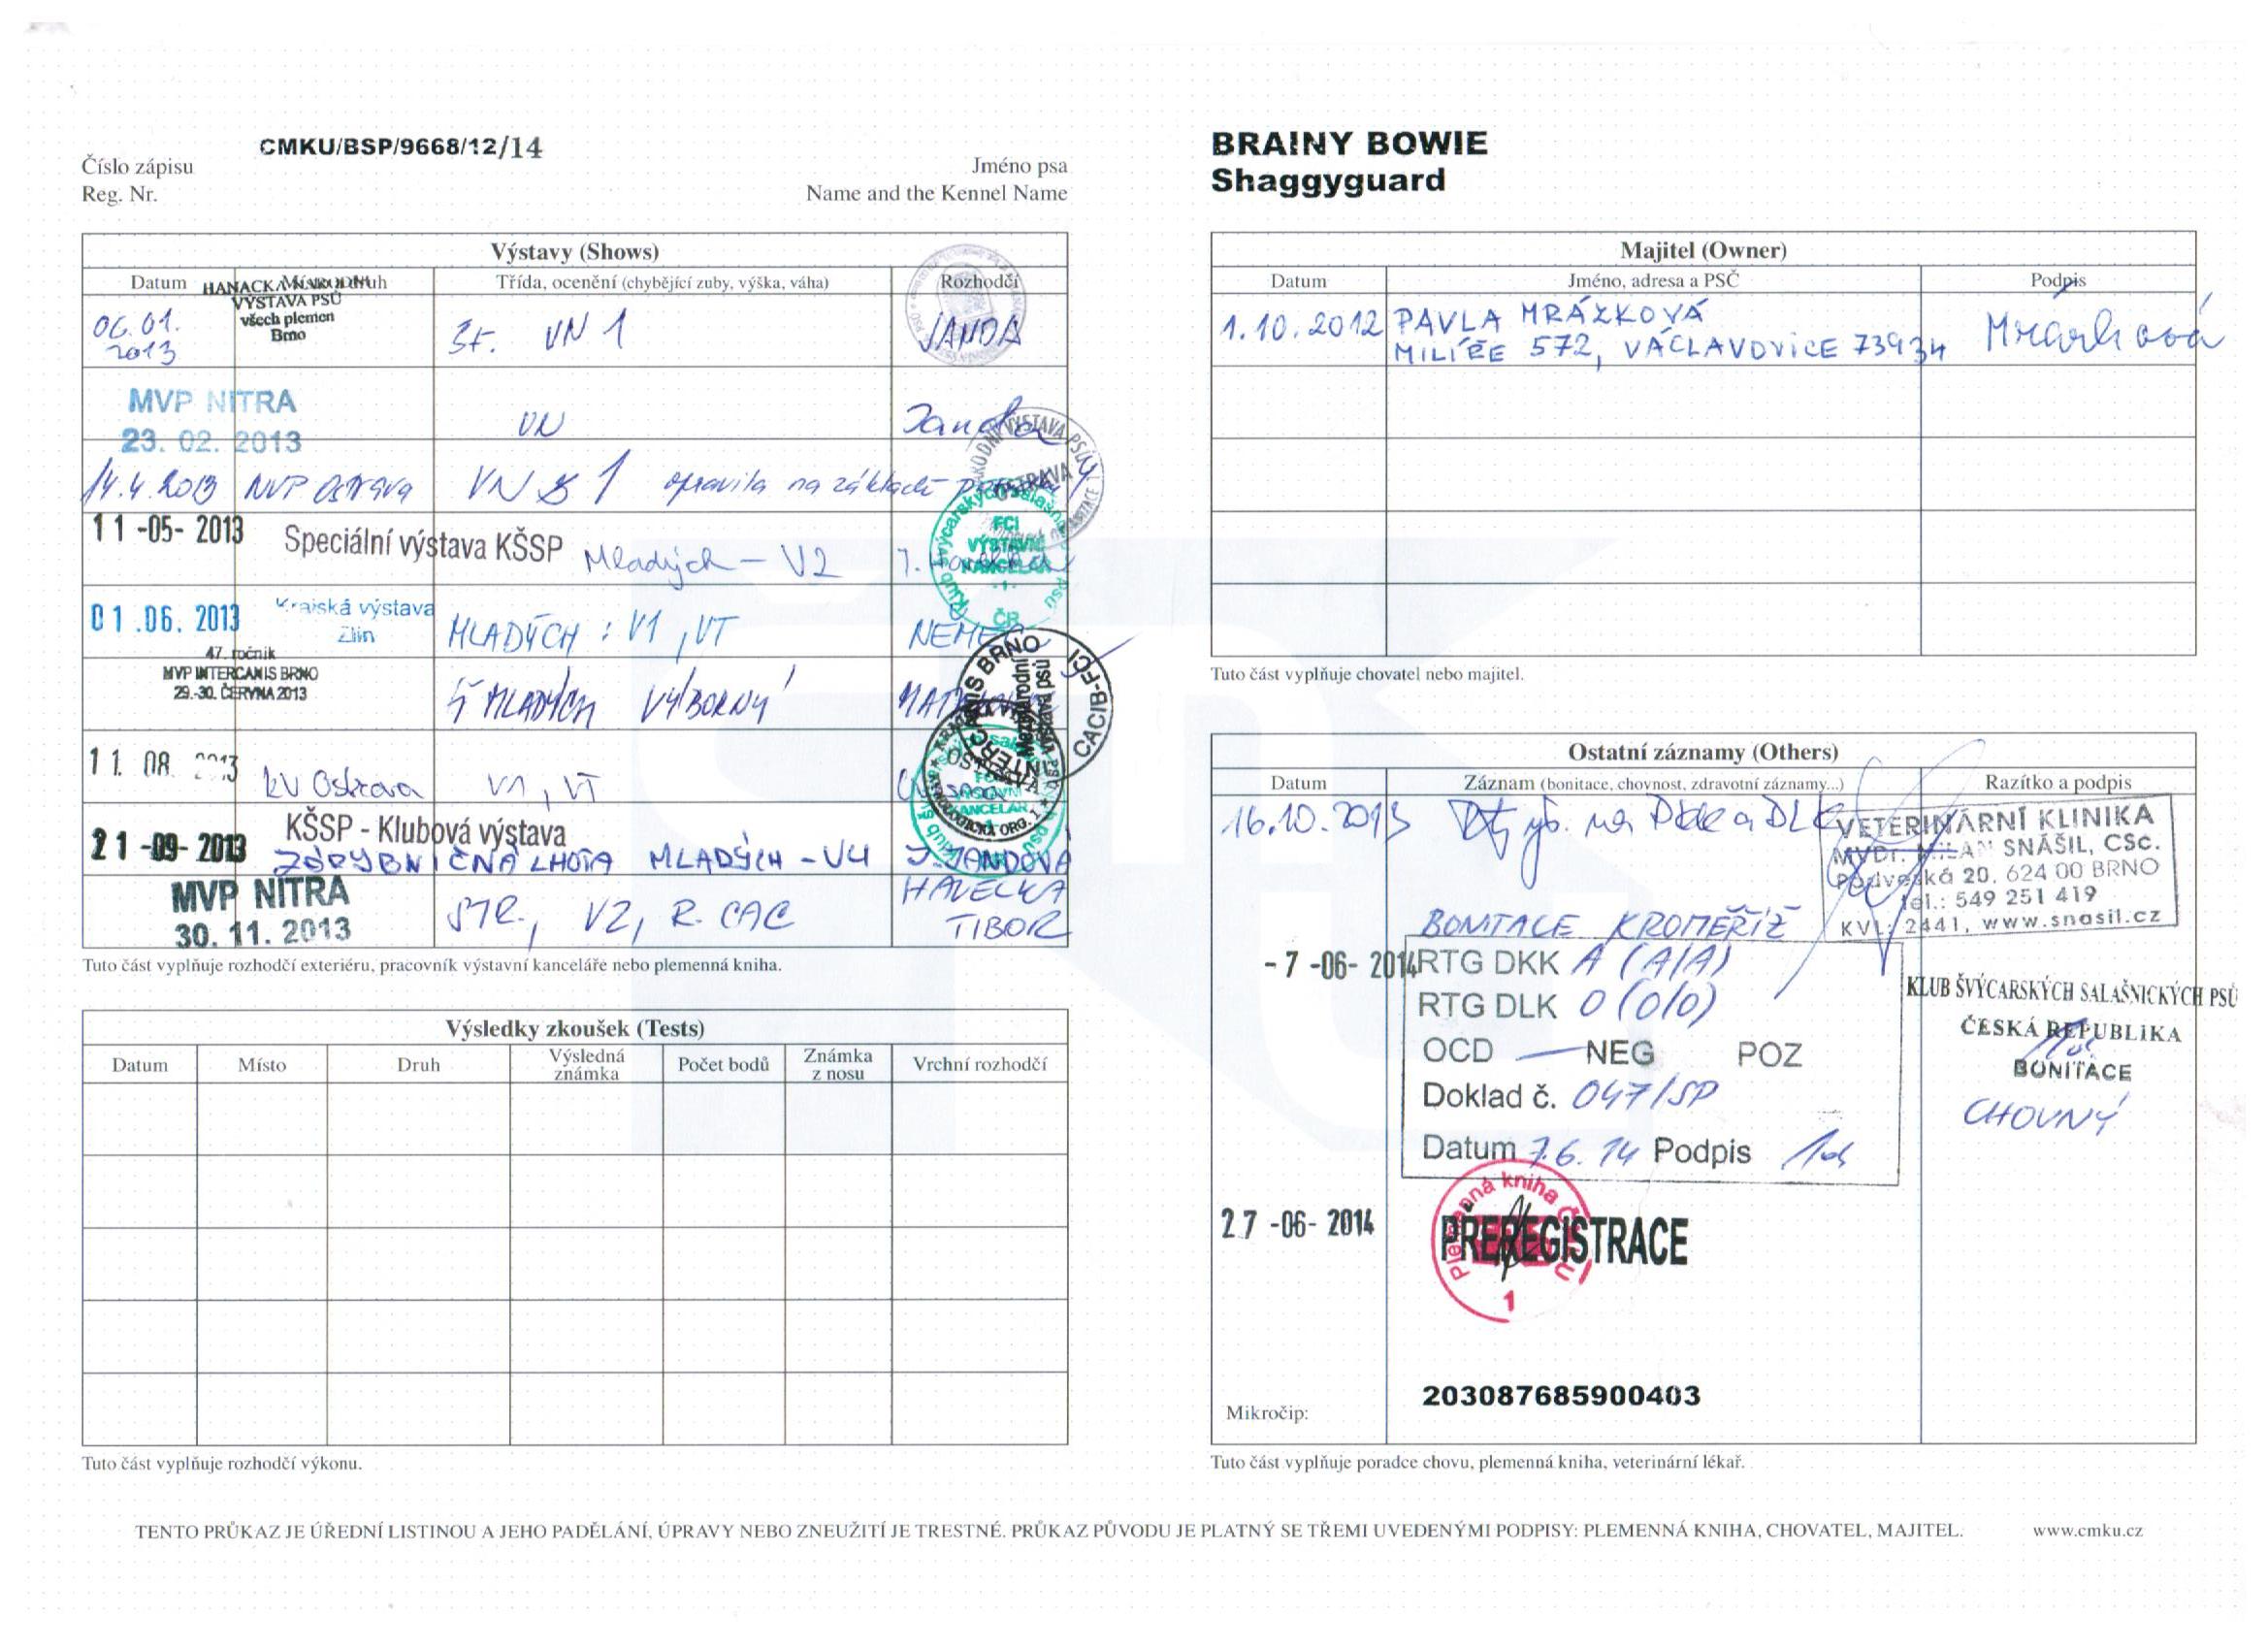 CMKU/BSP/9668/12/14
Číslo zápisu
Reg. Nr.
Jméno psa
Name and the Kennel Name
Výstavy (Shows)
Datum
Třída, ocenění (chybějící zuby, výška, váha)
Rozhodčí
HANACKÁ
VÝSTAVA PSŮ
všech plemen
Brno
06.01.
2013
VN 1
JANDA
MVP NITRA
23. 02. 2013
VN
14.4.2013 MVP Ostrava VN 1 opravila na základě
11 -05- 2013 Speciální výstava KŠSP Mladých - V2
01.06. 2013 Krajská výstava
Zlín
MLADÝCH : V1, VT
NEMEC
47. ročník
MVP INTERCANIS BRNO
29.-30. ČERVNA 2013
MLADÝCH VÝBORNÝ
11. 08. 2013 KV Ostrava V1, VT
21 -09- 2013 KŠSP - Klubová výstava
LHOTA MLADÝCH - V4 J. JANDOVÁ
MVP NITRA
30. 11. 2013
STR., V2, R. CAC
HAVELKA
TIBOR
Tuto část vyplňuje rozhodčí exteriéru, pracovník výstavní kanceláře nebo plemenná kniha.
Výsledky zkoušek (Tests)
Datum
Místo
Druh
Výsledná
známka
Počet bodů
Známka
z nosu
Vrchní rozhodčí
Tuto část vyplňuje rozhodčí výkonu.
BRAINY BOWIE
Shaggyguard
Majitel (Owner)
Datum
Jméno, adresa a PSČ
Podpis
1.10.2012 PAVLA MRÁZKOVÁ
572, VÁCLAVOVICE 73934
Mrázková
Tuto část vyplňuje chovatel nebo majitel.
Ostatní záznamy (Others)
Datum
Záznam (bonitace, chovnost, zdravotní záznamy...)
Razítko a podpis
16.10.2013
na DKK a DLK
VETERINÁRNÍ KLINIKA
MVDr. MILAN SNÁŠIL, CSc.
Podveská 20, 624 00 BRNO
tel.: 549 251 419
KVL: 2441, www.snasil.cz
BONITACE KROMĚŘÍŽ
-7 -06- 2014
RTG DKK A (A/A)
RTG DLK 0 (0/0)
OCD NEG POZ
Doklad č. 047/SP
Datum 7.6.14 Podpis
KLUB ŠVÝCARSKÝCH SALAŠNICKÝCH PSŮ
ČESKÁ REPUBLIKA
BONITACE
CHOVNÝ
27 -06- 2014
Plemenná kniha
PREREGISTRACE
1
Mikročip:
203087685900403
Tuto část vyplňuje poradce chovu, plemenná kniha, veterinární lékař.
TENTO PRŮKAZ JE ÚŘEDNÍ LISTINOU A JEHO PADĚLÁNÍ, ÚPRAVY NEBO ZNEUŽITÍ JE TRESTNÉ. PRŮKAZ PŮVODU JE PLATNÝ SE TŘEMI UVEDENÝMI PODPISY: PLEMENNÁ KNIHA, CHOVATEL, MAJITEL.
www.cmku.cz